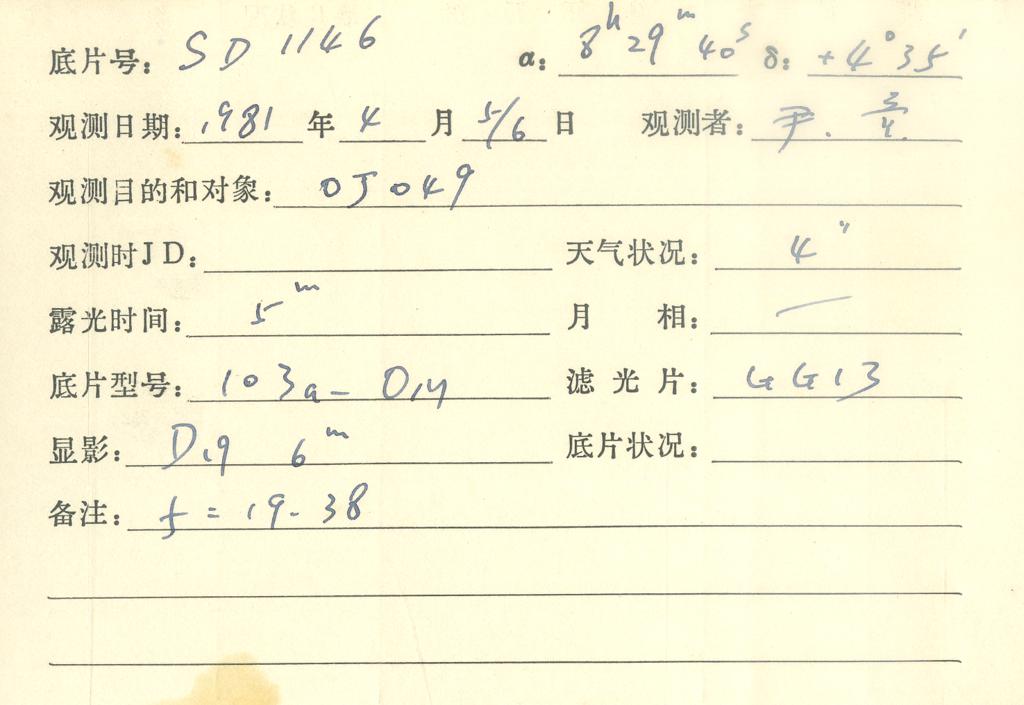 底片号: SD 1146 α: 8h 29m 40s δ: +4°35′
观测日期: 1981 年 4 月 5/6 日 观测者: 尹.
观测目的和对象: OJ049
观测时JD: 天气状况: 4″
露光时间: 5m 月 相: 一
底片型号: 103a-O, 滤光片: GG13
显影: D19 6m 底片状况:
备注: f = 19.38